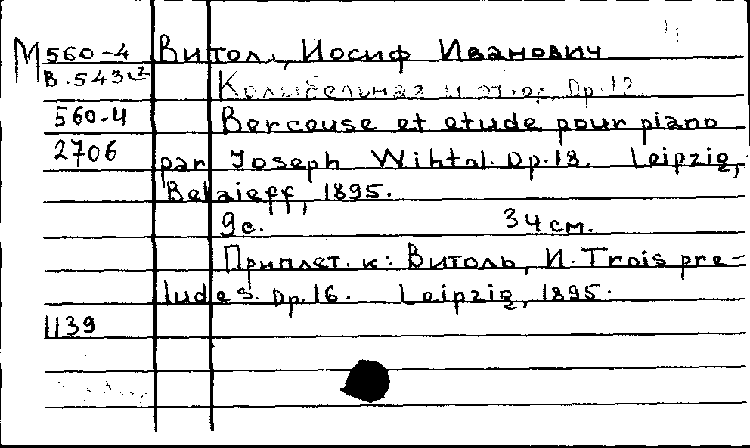 М 560-4 Витол, Иосиф Иванович
В.543и2 Колыбельная и этюд. Op.18
560-4 Berceuse et etude pour piano
2706 par Joseph Wihtol. Op.18. Leipzig,
Belaieff, 1895.
9с. 34 см.
Приплет. к: Витоль, И. Trois pre-
ludes. Op.16. Leipzig, 1895.
1139